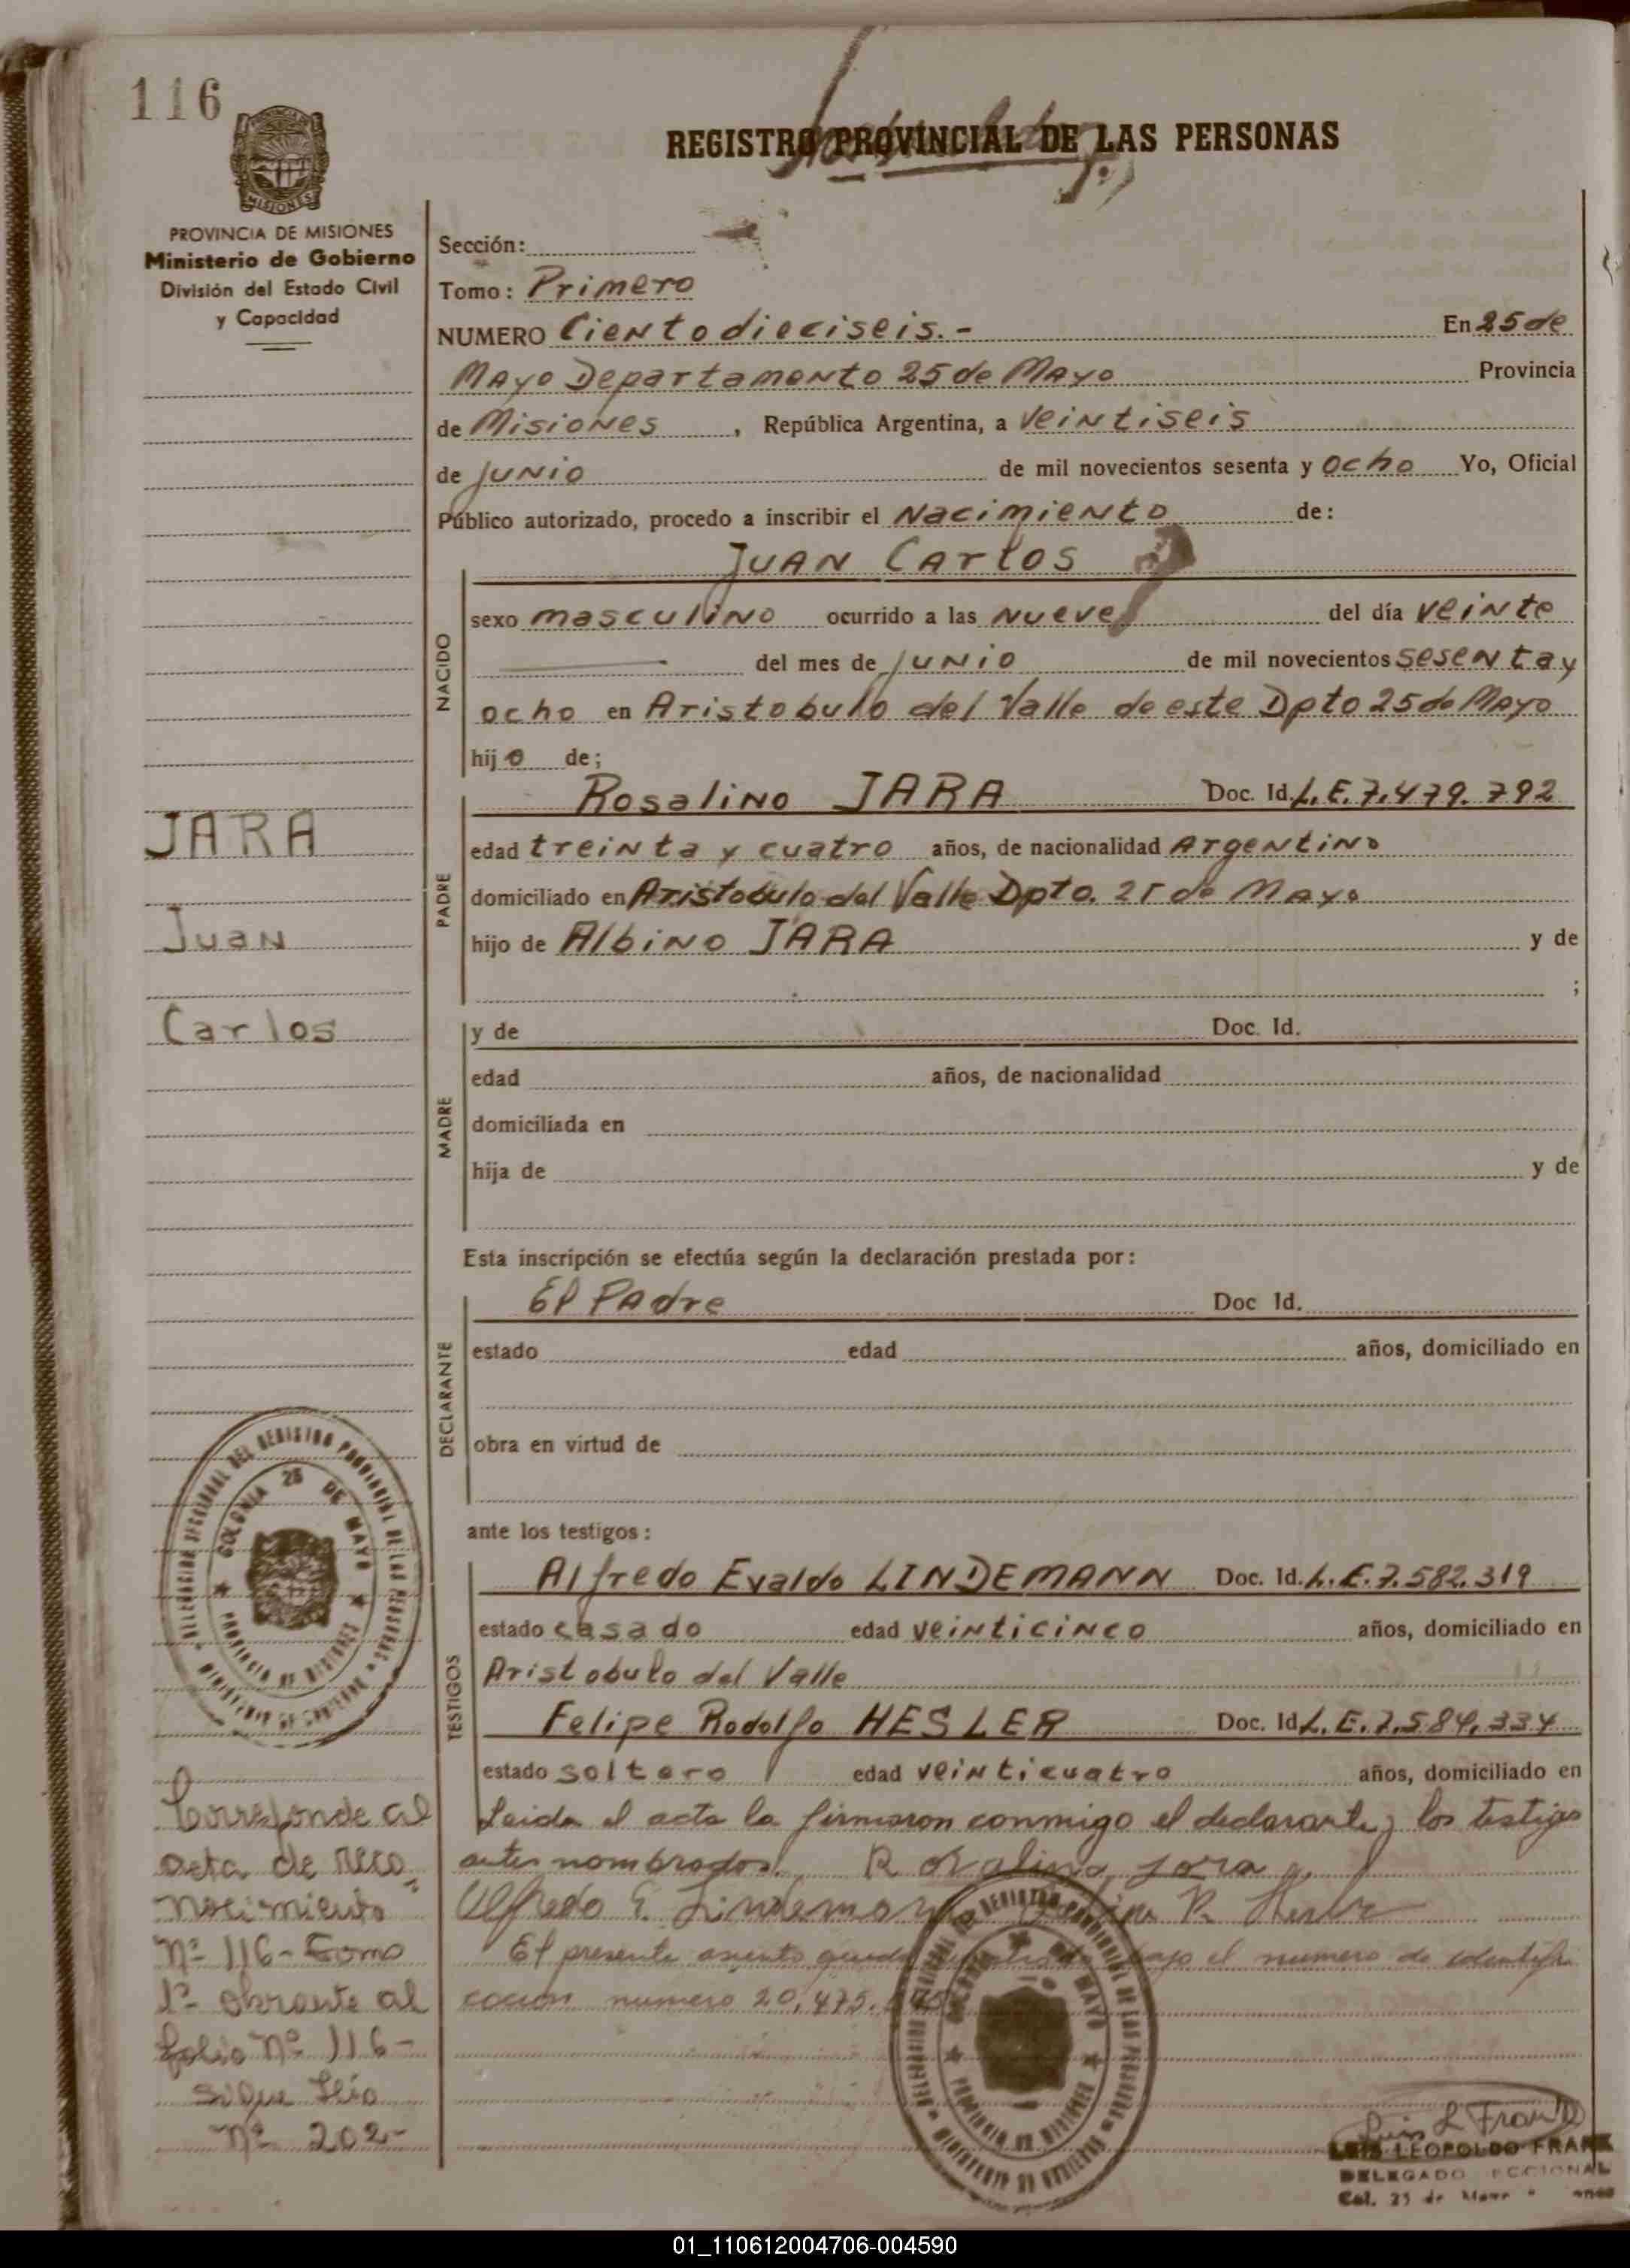 116
REGISTRO PROVINCIAL DE LAS PERSONAS
MISIONES
PROVINCIA DE MISIONES
Ministerio de Gobierno
División del Estado Civil
y Capacidad
Sección:
Tomo: Primero
NUMERO Ciento dieciseis.- En 25 de
Mayo Departamento 25 de Mayo Provincia
de Misiones, República Argentina, a veintiseis
de junio de mil novecientos sesenta y ocho Yo, Oficial
Público autorizado, procedo a inscribir el Nacimiento de:
JUAN CARLOS
NACIDO
sexo masculino ocurrido a las nueve del día veinte
del mes de junio de mil novecientos sesenta y
ocho en Aristobulo del Valle de este Dpto 25 de Mayo
hijo de;
PADRE
Rosalino JARA Doc. Id. L.E. 7.479.792
edad treinta y cuatro años, de nacionalidad Argentino
domiciliado en Aristobulo del Valle Dpto. 25 de Mayo
hijo de Albino JARA y de
;
JARA
Juan
Carlos
MADRE
y de Doc. Id.
edad años, de nacionalidad
domiciliada en
hija de y de
Esta inscripción se efectúa según la declaración prestada por:
DECLARANTE
El Padre Doc Id.
estado edad años, domiciliado en
obra en virtud de
ante los testigos:
TESTIGOS
Alfredo Evaldo LINDEMANN Doc. Id. L.E. 7.582.319
estado casado edad veinticinco años, domiciliado en
Aristobulo del Valle
Felipe Rodolfo HESLER Doc. Id. L.E. 7.584.334
estado soltero edad veinticuatro años, domiciliado en
Leida el acta la firmaron conmigo el declarante y los testigos
antes nombrados. Rosalino Jara
Alfredo E. Lindemann R. Hesler
El presente asiento queda bajo el numero de identifi
cación numero 20,475.
DELEGACION SECCIONAL DEL REGISTRO PROVINCIAL DE LAS PERSONAS
MINISTERIO DE GOBIERNO
COLONIA 25 DE MAYO
PROVINCIA DE MISIONES
Corresponde al
acta de reco
nocimiento
Nº 116- Tomo
1º obrante al
folio Nº 116-
Sigue flio
Nº 202-
DELEGACION SECCIONAL DEL REGISTRO PROVINCIAL DE LAS PERSONAS
MINISTERIO DE GOBIERNO
COLONIA 25 DE MAYO
PROVINCIA DE MISIONES
Luis L Frank
LUIS LEOPOLDO FRANK
DELEGADO SECCIONAL
Col. 25 de Mayo
01_110612004706-004590